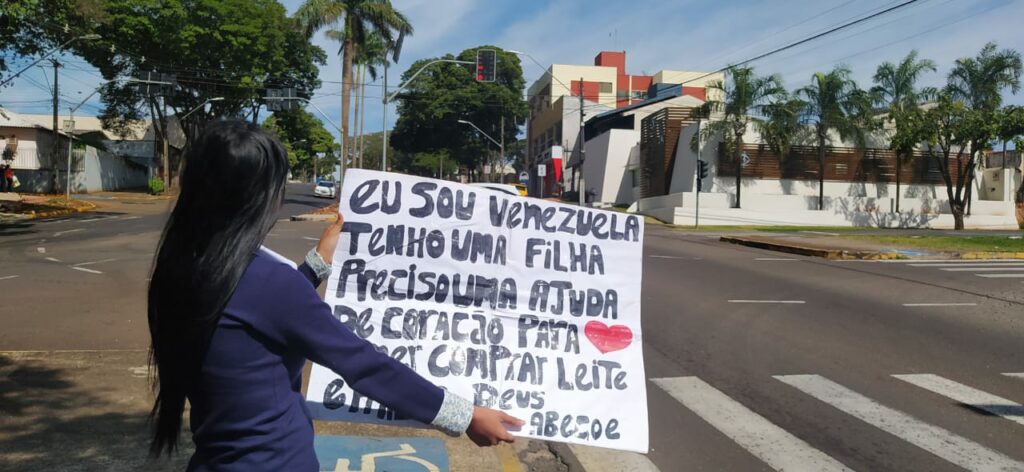 eu sou venezuela
Tenho uma Filha
Preciso uma AJuDa
De coração Para
comprar Leite
Deus
ABeçoe